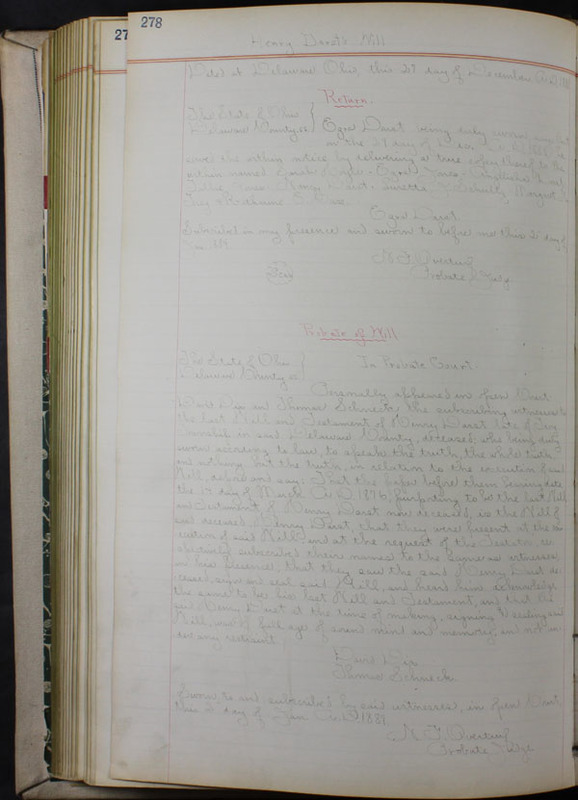 278
27
Henry Darst's Will
Dated at Delaware Ohio, this 27 day of December A.D. 188
Return.
The State of Ohio
Delaware County, ss. Ezra Darst being duly sworn
on the 27 day of
served the within notice by delivering a true copy thereof to the
within named Sarah
Darst, Margaret
Ezra Darst
Subscribed in my presence and sworn to before me this 2 day of
N. F. Overturf
Seal Probate Judge
Probate of Will
The State of Ohio In Probate Court.
Delaware County ss
Personally appeared in open Court
David Dix and Thomas Schneck, the subscribing witnesses to
the last Will and Testament of Henry Darst late of
Township in said Delaware County, deceased, who being duly
sworn according to law, to speak the truth, the whole truth
and nothing but the truth, in relation to the execution of said
Will, depose and say: That the paper before them bearing date
the 17 day of March A.D. 1876, purporting to be the last Will
and Testament of Henry Darst now deceased, is the Will of
said deceased, Henry Darst, that they were present at the ex-
ecution of said Will and at the request of the Testator
subscribed their names to the same as witnesses
in his presence, that they saw the said Henry Darst de-
ceased, sign and seal said Will, and heard him acknowledge
the same to be his last Will and Testament, and that the
said Henry Darst at the time of making, signing & sealing said
Will, was of full age of sound mind and memory and not un-
der any restraint.
David Dix
Thomas Schneck
Sworn to and subscribed by said witnesses, in open Court,
this 2 day of Jan A.D. 1889
N. F. Overturf
Probate Judge